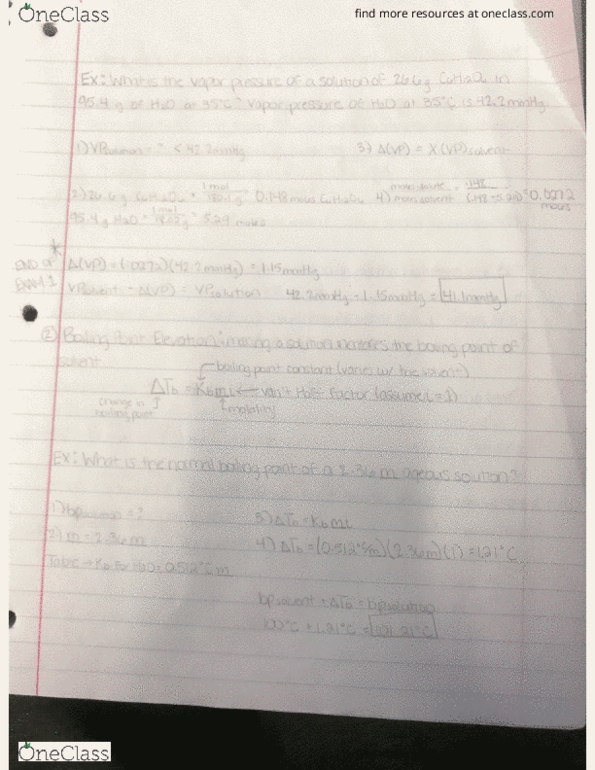 OneClass
find more resources at oneclass.com
Ex: What is the vapor pressure of a solution of 26.6g C6H12O6 in
95.4 g of H2O at 35°C? Vapor pressure of H2O at 35°C is 42.2 mmHg
1) VPsolution = ? < 42.2 mmHg
3) Δ(VP) = X(VP)solvent
2) 26.6 g C6H12O6 × 1 mol = 0.148 moles C6H12O6 4) = 0.0272
95.4 g H2O × 1 mol = 5.29 moles
END OF Δ(VP) = (.0272)(42.2 mmHg) = 1.15 mmHg
EXAM 1 VPsolvent - Δ(VP) = VPsolution 42.2 mmHg - 1.15 mmHg = 41.1 mmHg
② Boiling Point Elevation: making a solution increases the boiling point of
solvent
boiling point constant (varies w/ the solvent)
ΔTb = Kbmi ← van't Hoff factor (assume i = 1)
change in boiling point
molality
Ex: What is the normal boiling point of a 2.36 m aqeous solution?
1) bpsolution = ?
3) ΔTb = Kbmi
2) m = 2.36 m
4) ΔTb = (0.512°C/m)(2.36m)(1) = 1.21°C
Table → Kb for H2O = 0.512°C/m
bpsolvent + ΔTb = bpsolution
100°C + 1.21°C = 101.21°C
OneClass